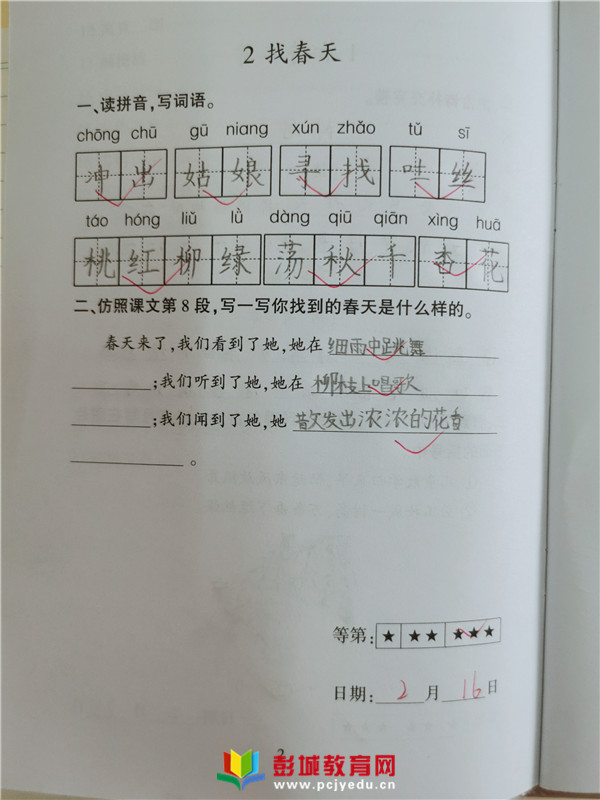 2 找春天
一、读拼音,写词语。
chōng chū gū niang xún zhǎo tǔ sī
冲出 姑娘 寻找 吐丝
táo hóng liǔ lǜ dàng qiū qiān xìng huā
桃红柳绿 荡秋千 杏花
二、仿照课文第8段,写一写你找到的春天是什么样的。
春天来了,我们看到了她,她在细雨中跳舞
;我们听到了她,她在 柳枝上唱歌
;我们闻到了她,她 散发出浓浓的花香
。
等第: ★ ★★ ★★★
日期: 2 月 16 日
2
彭城教育网
www.pcjyedu.cn